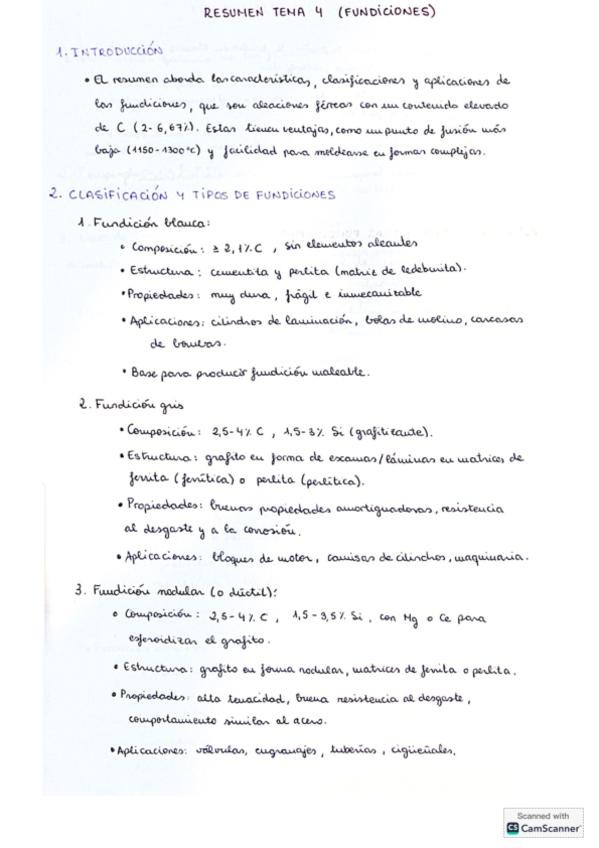 RESUMEN TEMA 4 (FUNDICIONES)
1. INTRODUCCIÓN
• EL resumen aborda las características, clasificaciones y aplicaciones de
las fundiciones, que son aleaciones férreas con un contenido elevado
de C (2-6,67%). Estas tienen ventajas, como un punto de fusión más
bajo (1150-1300°C) y facilidad para moldearse en formas complejas.
2. CLASIFICACIÓN Y TIPOS DE FUNDICIONES
1. Fundición blanca:
• Composición: ≥ 2,1% C, sin elementos aleantes
• Estructura: cementita y perlita (matriz de ledeburita).
• Propiedades: muy dura, frágil e inmecanizable
• Aplicaciones: cilindros de laminación, bolas de molino, carcasas
de bombas.
• Base para producir fundición maleable.
2. Fundición gris
• Composición: 2,5-4% C, 1,5-3% Si (grafitizante).
• Estructura: grafito en forma de escamas/láminas en matrices de
ferrita (ferrítica) o perlita (perlítica).
• Propiedades: buenas propiedades amortiguadoras, resistencia
al desgaste y a la corrosión.
• Aplicaciones: bloques de motor, camisas de cilindros, maquinaria.
3. Fundición nodular (o dúctil):
• Composición: 2,5-4% C, 1,5-3,5% Si, con Mg o Ce para
esferoidizar el grafito.
• Estructura: grafito en forma nodular, matrices de ferrita o perlita.
• Propiedades: alta tenacidad, buena resistencia al desgaste,
comportamiento similar al acero.
• Aplicaciones: válvulas, engranajes, tuberías, cigüeñales.
Scanned with
CS CamScanner